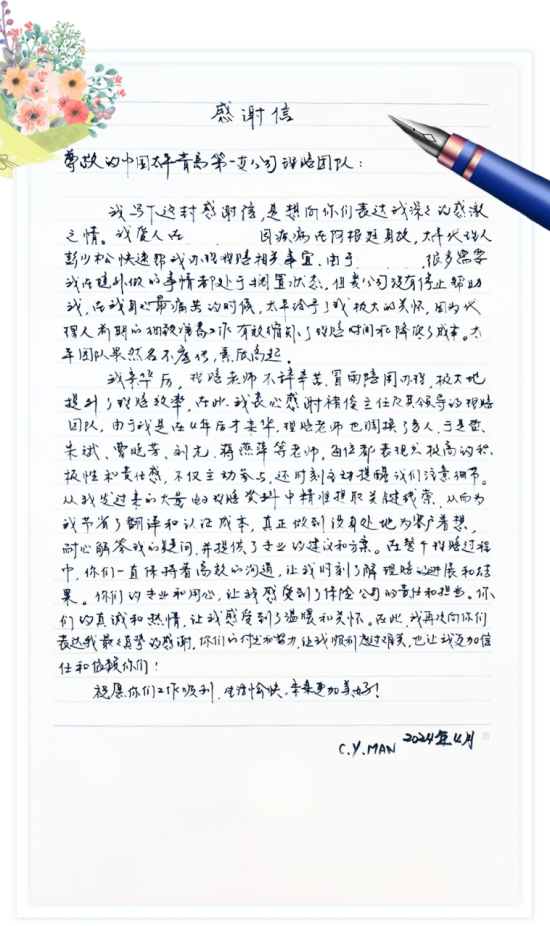 感谢信
尊敬的中国太平青岛第一支公司理赔团队：
我写下这封感谢信，是想向你们表达我深深的感激
之情。我爱人在 因疾病在阿根廷身故，太平代理人
彭少松快速帮我办理理赔相关事宜，由于 很多需要
我在境外做的事情都处于搁置状态，但贵公司没有停止帮助
我，在我身心最痛苦的时候，太平给予了我极大的关怀，因为代
理人前期的细致准备工作有效缩短了理赔时间和降低了成本。太
平团队果然名不虚传，素质高超。
我来华后，理赔老师不辞辛苦，冒雨陪同办理，极大地
提升了理赔效率，在此，我衷心感谢褚俊主任及其领导的理赔
团队，由于我是在4年后才来华，理赔老师也调换了多人，于是
朱斌、曹晓芳、刘尤、蒋燕萍等老师，每位都表现出极高的积
极性和责任感，不仅主动参与，还时刻主动提醒我们注意细节。
从我发过来的大量的理赔资料中精准提取关键线索，从而为
我节省了翻译和认证成本，真正做到设身处地为客户着想，
耐心解答我的疑问，并提供了专业的建议和方案。在整个理赔过程
中，你们一直保持着高效的沟通，让我时刻了解理赔的进展和结
果。你们的专业和用心，让我感受到了保险公司的责任和担当。你
们的真诚和热情，让我感受到了温暖和关怀。在此，我再次向你们
表达我最真挚的感谢，你们的付出和努力，让我顺利度过难关，也让我更加信
任和依赖你们！
祝愿你们工作顺利，生活愉快，未来更加美好！
C.Y.MAN 2024年4月